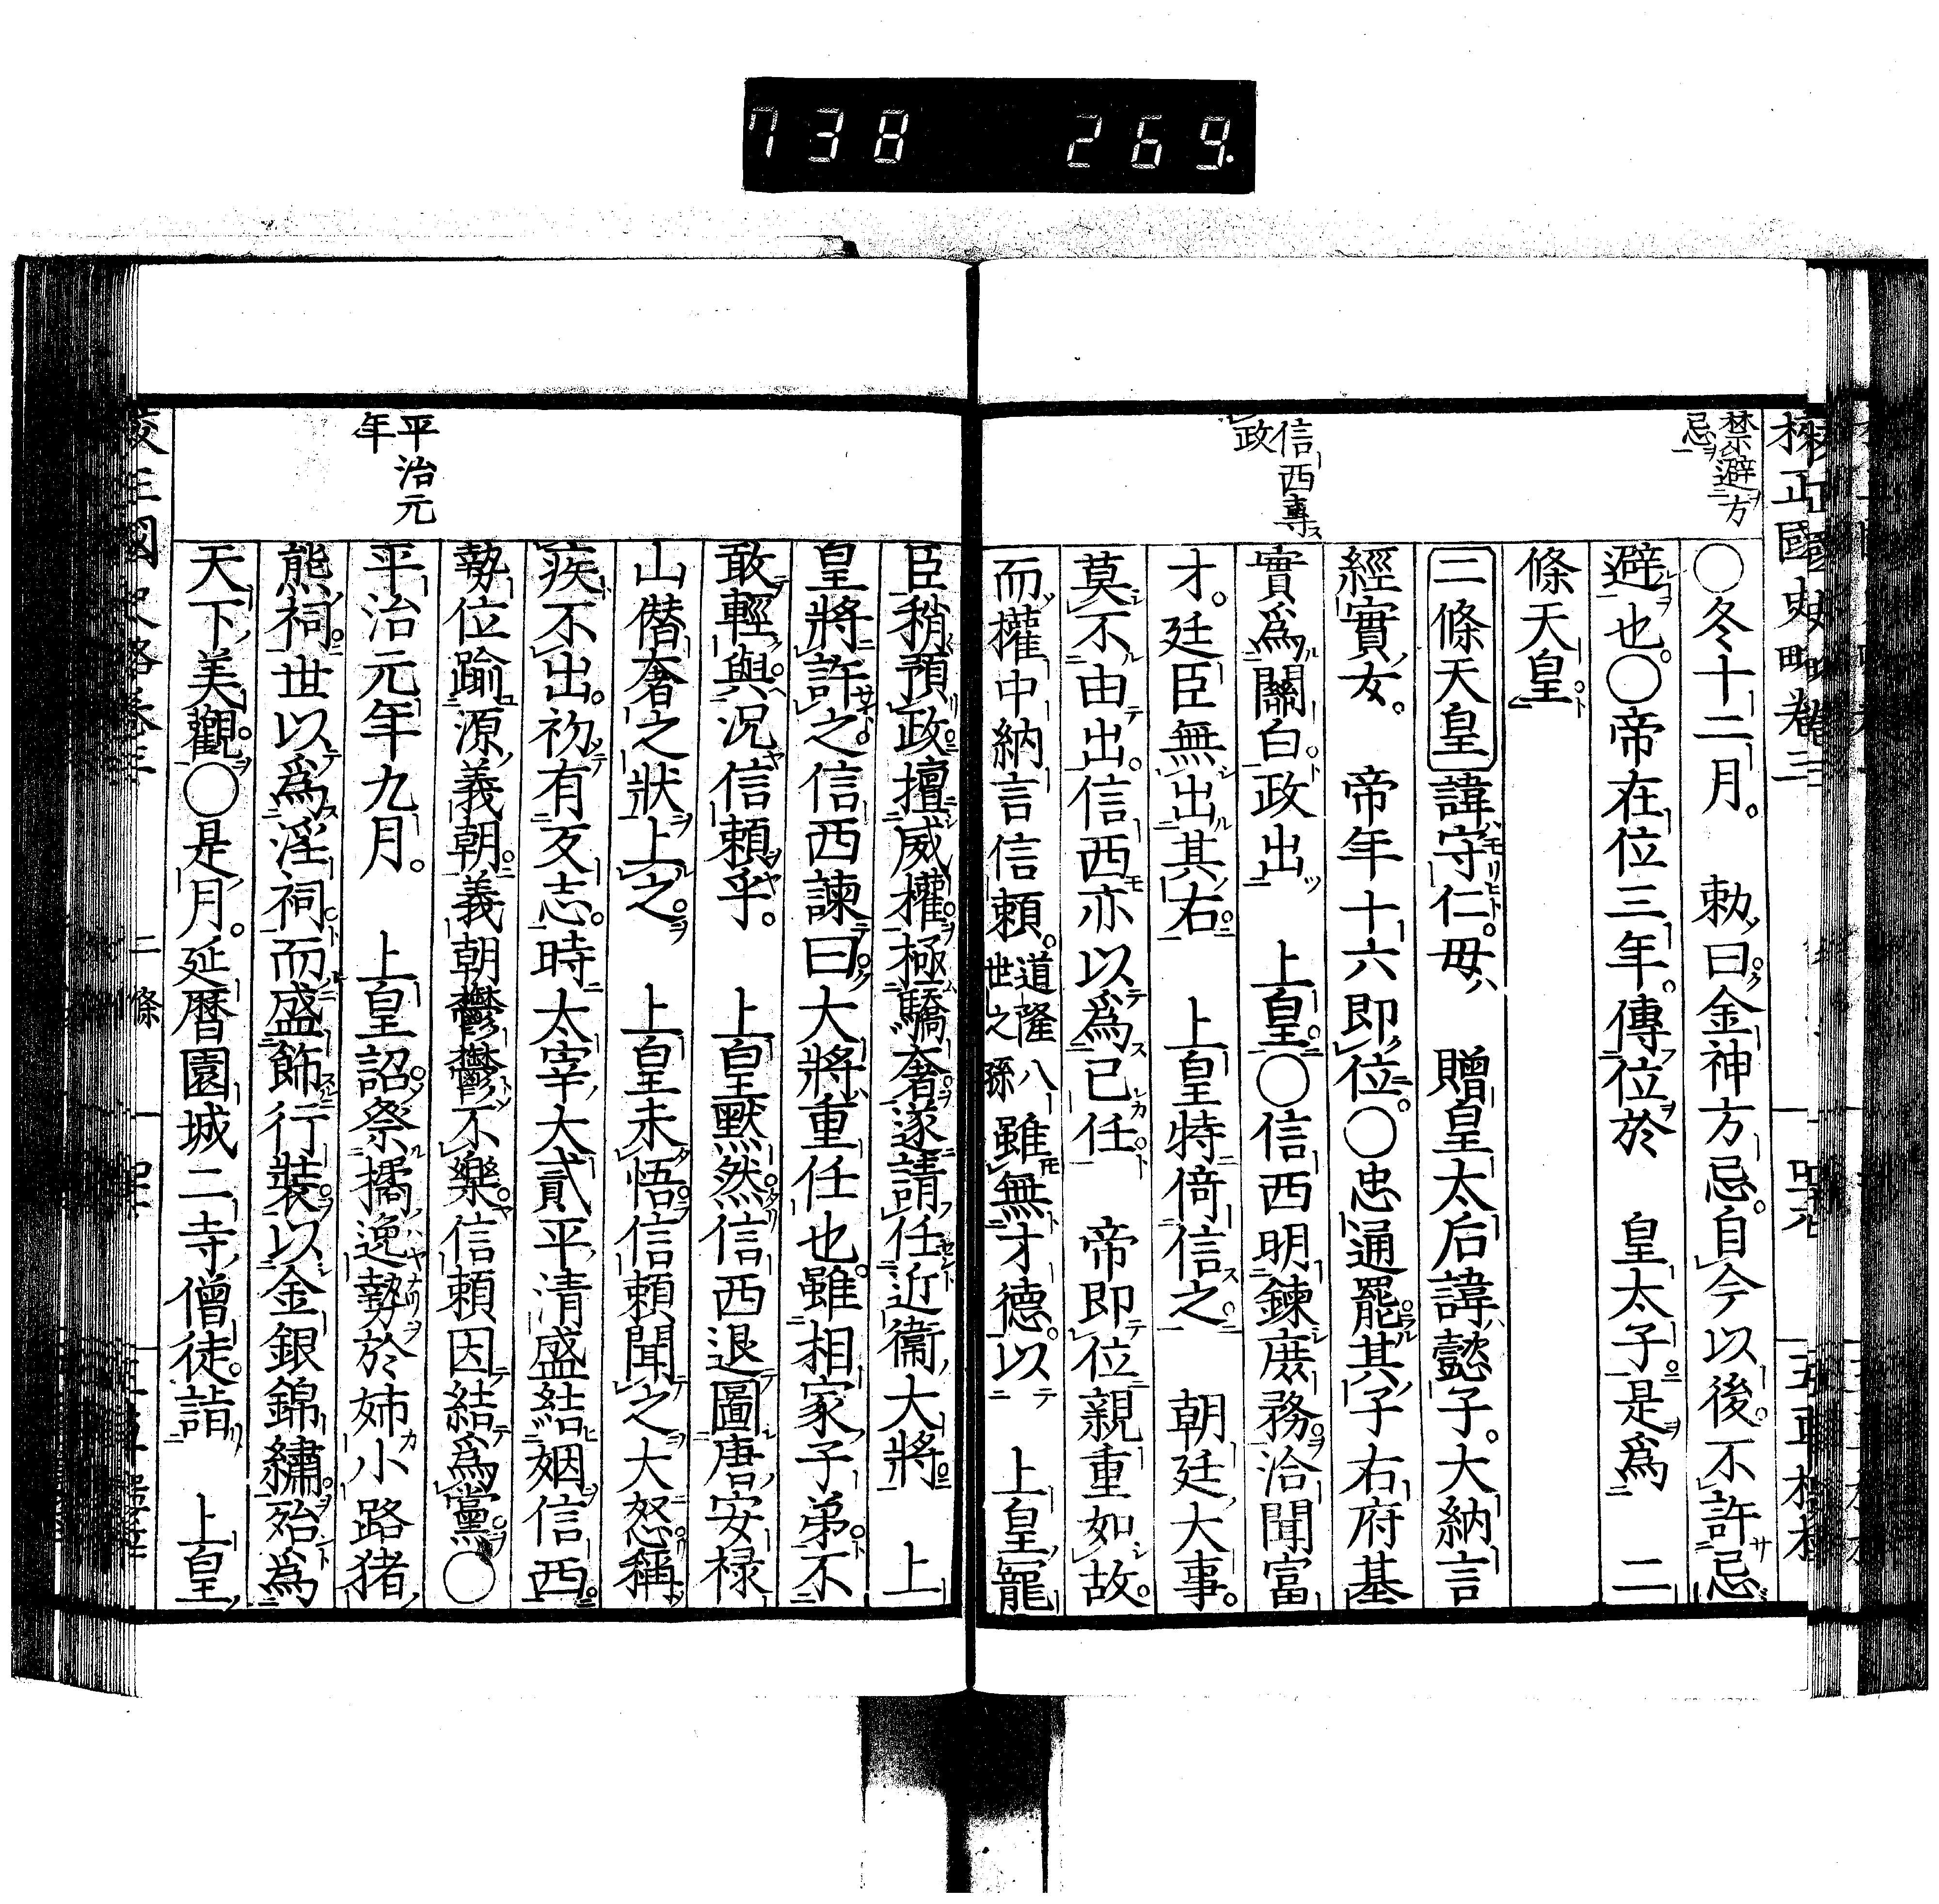 738 269.
禁避方
忌
○冬十二月。 勅曰金神方忌。自今以後。不許忌
避也。○帝在位三年。傳位於 皇太子是爲 二
條天皇
二條天皇諱守仁。母 贈皇太后諱懿子。大納言
經實女。 帝年十六即位。○忠通罷其子右府基
信西專
政
實爲關白政出 上皇○信西明鍊庶務洽聞富
才。廷臣無出其右 上皇特倚信之 朝廷大事。
莫不由出。信西亦以爲己任 帝即位親重如故。
而權中納言信賴。道隆八世之孫雖無才德。以 上皇寵
臣稍預政擅威權極驕奢遂請任近衞大將 上
皇將許之。信西諫曰大將重任也。雖相家子弟不
敢輕與況信賴乎。 上皇默然信西退圖唐安祿
山僭奢之狀上之 上皇未悟信賴聞之大怒稱
疾不出。初有叐志。時太宰大貳平清盛結姻信西
勢位踰源義朝義朝鬱鬱不樂信賴因結爲黨○
平治元
年
平治元年九月。 上皇詔祭橘逸勢於姉小路猪
熊祠世以爲淫祠而盛飾行裝以金銀錦繡殆爲
天下美觀○是月。延曆園城二寺僧徒。詣 上皇
二條